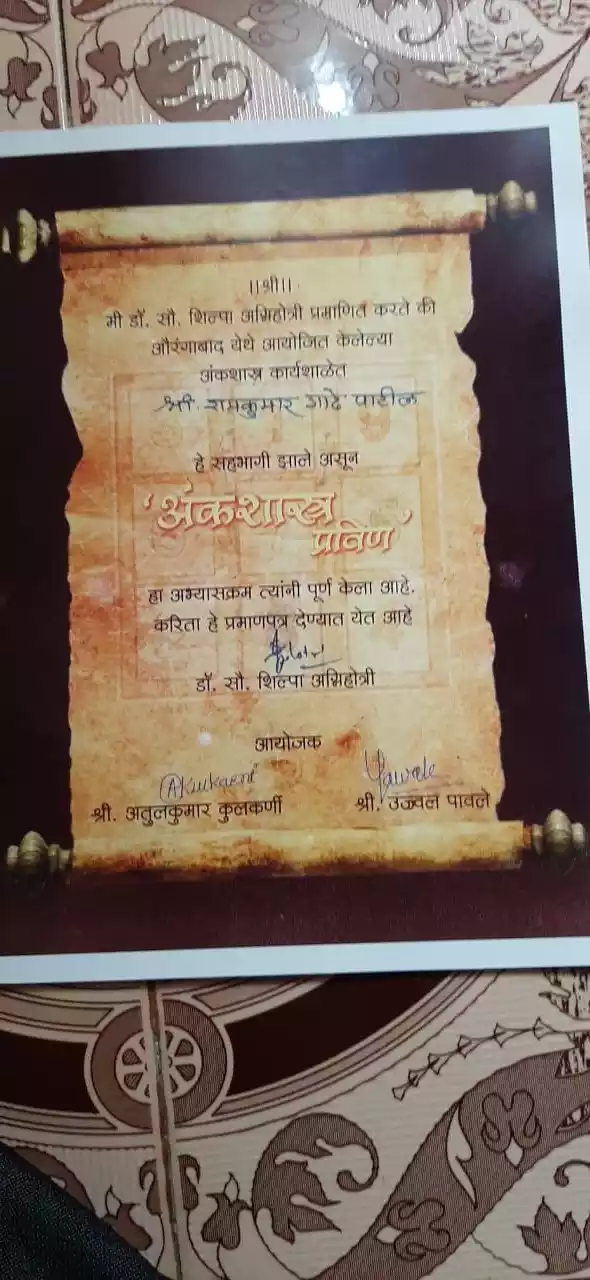 ||श्री||
मी डॉ. सौ. शिल्पा अग्निहोत्री प्रमाणित करते की
औरंगाबाद येथे आयोजित केलेल्या
अंकशास्त्र कार्यशाळेत
श्री. रामकुमार गाढे पाटील
हे सहभागी झाले असून
'अंकशास्त्र
प्रविण'
हा अभ्यासक्रम त्यांनी पूर्ण केला आहे.
करिता हे प्रमाणपत्र देण्यात येत आहे
डॉ. सौ. शिल्पा अग्निहोत्री
आयोजक
AKulkarni
श्री. अतुलकुमार कुलकर्णी श्री. उज्वल पावले